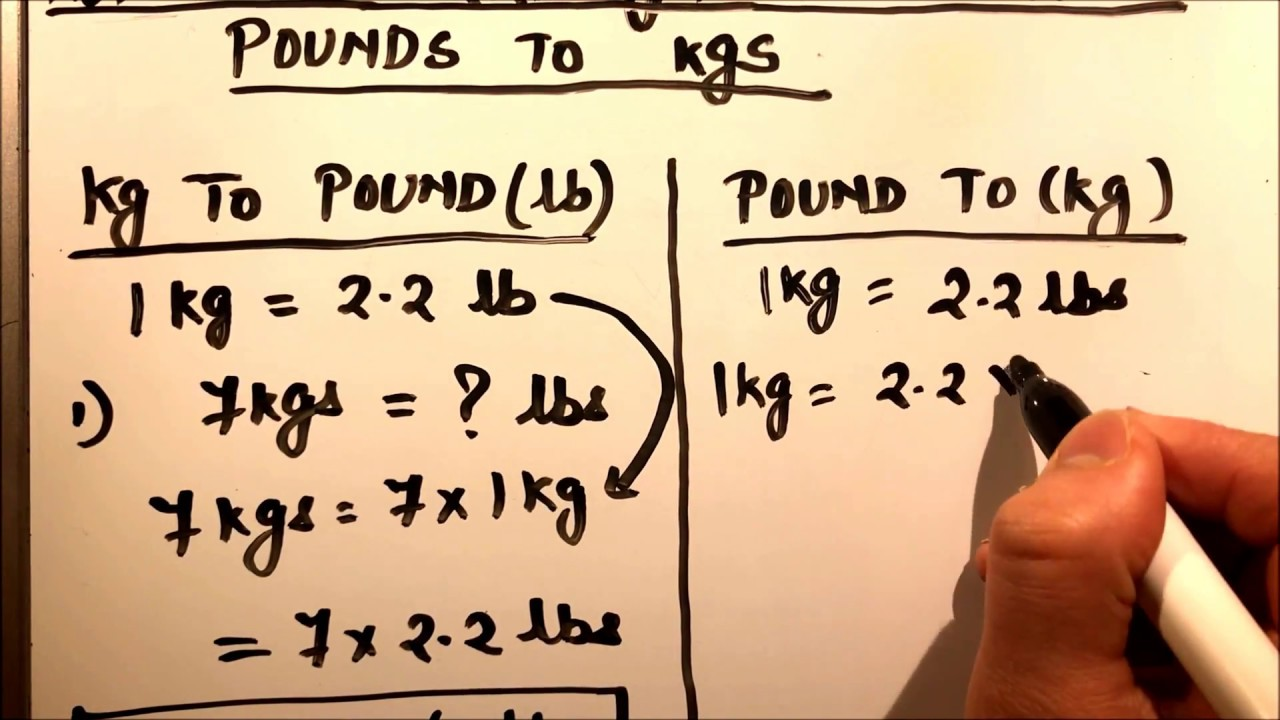 POUNDS TO kgs
kg TO POUND (lb)
1 kg = 2.2 lb
1) 7kgs = ? lbs
7 kgs = 7 x 1 kg
= 7 x 2.2 lbs
POUND TO (kg)
1kg = 2.2 lbs
1kg = 2.2